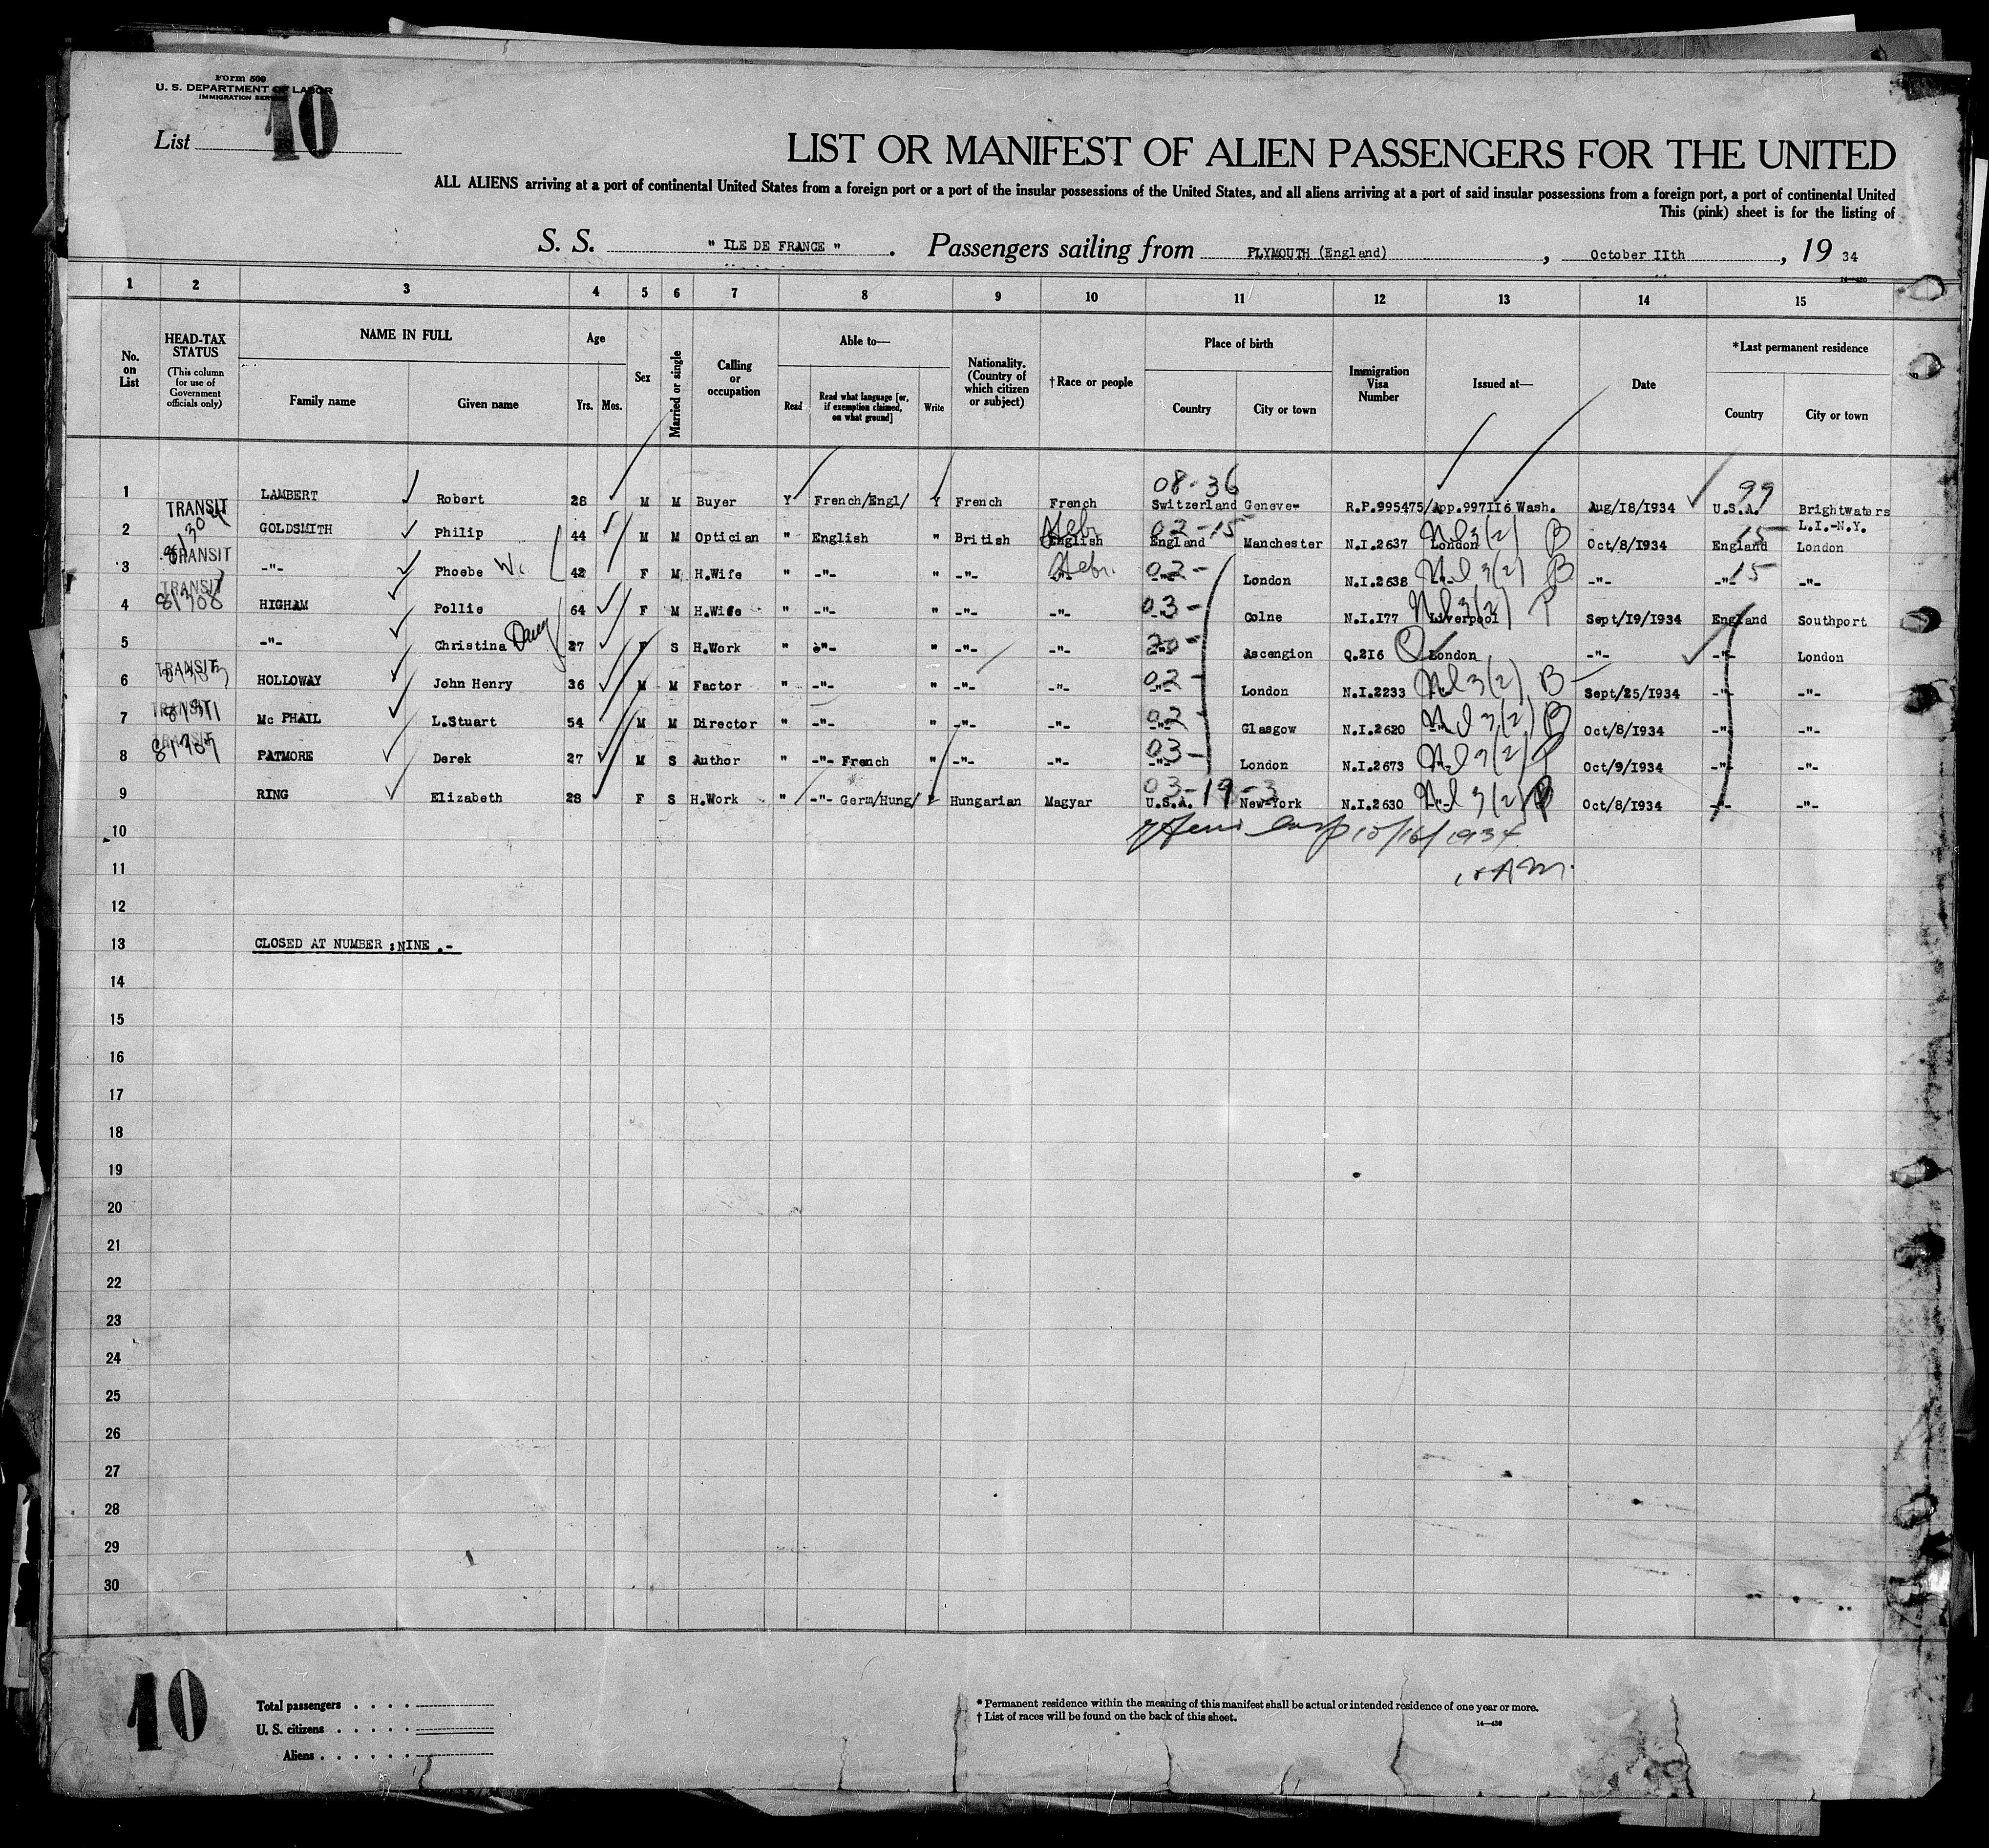 Form 500
U. S. DEPARTMENT OF LABOR
IMMIGRATION SERVICE
List 10
LIST OR MANIFEST OF ALIEN PASSENGERS FOR THE UNITED
ALL ALIENS arriving at a port of continental United States from a foreign port or a port of the insular possessions of the United States, and all aliens arriving at a port of said insular possessions from a foreign port, a port of continental United
This (pink) sheet is for the listing of
S. S. " ILE DE FRANCE " . Passengers sailing from PLYMOUTH (England) , October IIth , 19 34
1 2 3 4 5 6 7 8 9 10 11 12 13 14 15
No. on List
HEAD-TAX STATUS
(This column for use of Government officials only)
NAME IN FULL
Family name Given name
Age
Yrs. Mos.
Sex
Married or single
Calling or occupation
Able to—
Read Read what language [or, if exemption claimed, on what ground] Write
Nationality. (Country of which citizen or subject)
† Race or people
Place of birth
Country City or town
Immigration Visa Number
Issued at—
Date
*Last permanent residence
Country City or town
08-36 99
1 LAMBERT Robert 28 M M Buyer Y French/Engl/ Y French French Switzerland Geneve- R.P.995475/App.997II6 Wash. Aug/I8/I934 U.S.A. Brightwaters L.I.-N.Y.
TRANSIT Hebr 02-15 Nl 3(2) B 15
2 GOLDSMITH Philip 44 M M Optician " English " British English England Manchester N.I.2637 London Oct/8/I934 England London
TRANSIT Hebr. 02- Nl 3(2) B 15
3 -"- Phoebe W. 42 F M H.Wife " -"- " -"- -"- -"- London N.I.2638 -"- -"- -"- -"-
TRANSIT 81308 03- Nl 3(2) P
4 HIGHAM Pollie 64 F M H.Wife " -"- " -"- -"- -"- Colne N.I.I77 Liverpool Sept/I9/I934 England Southport
5 -"- Christina 27 F S H.Work " -"- " -"- -"- -"- Ascengion Q.2I6 London -"- -"- London
TRANSIT 02- Nl 3(2) B
6 HOLLOWAY John Henry 36 M M Factor " -"- " -"- -"- -"- London N.I.2233 -"- Sept/25/I934 -"- -"-
TRANSIT 81311 02- Nl 3(2) B
7 Mc PHAIL L.Stuart 54 M M Director " -"- " -"- -"- -"- Glasgow N.I.2620 -"- Oct/8/I934 -"- -"-
TRANSIT 81307 03- Nl 3(2) P
8 PATMORE Derek 27 M S Author " -"- French " -"- -"- -"- London N.I.2673 -"- Oct/9/I934 -"- -"-
03-19-3 Nl 3(2)
9 RING Elizabeth 28 F S H.Work " -"- Germ/Hung/ " Hungarian Magyar U.S.A. New-York N.I.2630 -"- Oct/8/I934 -"- -"-
10 10/16/1934
11
12
13 CLOSED AT NUMBER :NINE .-
14
15
16
17
18
19
20
21
22
23
24
25
26
27
28
29
30
10
Total passengers . . . .
U. S. citizens . . . . .
Aliens . . . . . .
* Permanent residence within the meaning of this manifest shall be actual or intended residence of one year or more.
† List of races will be found on the back of this sheet.
14—430